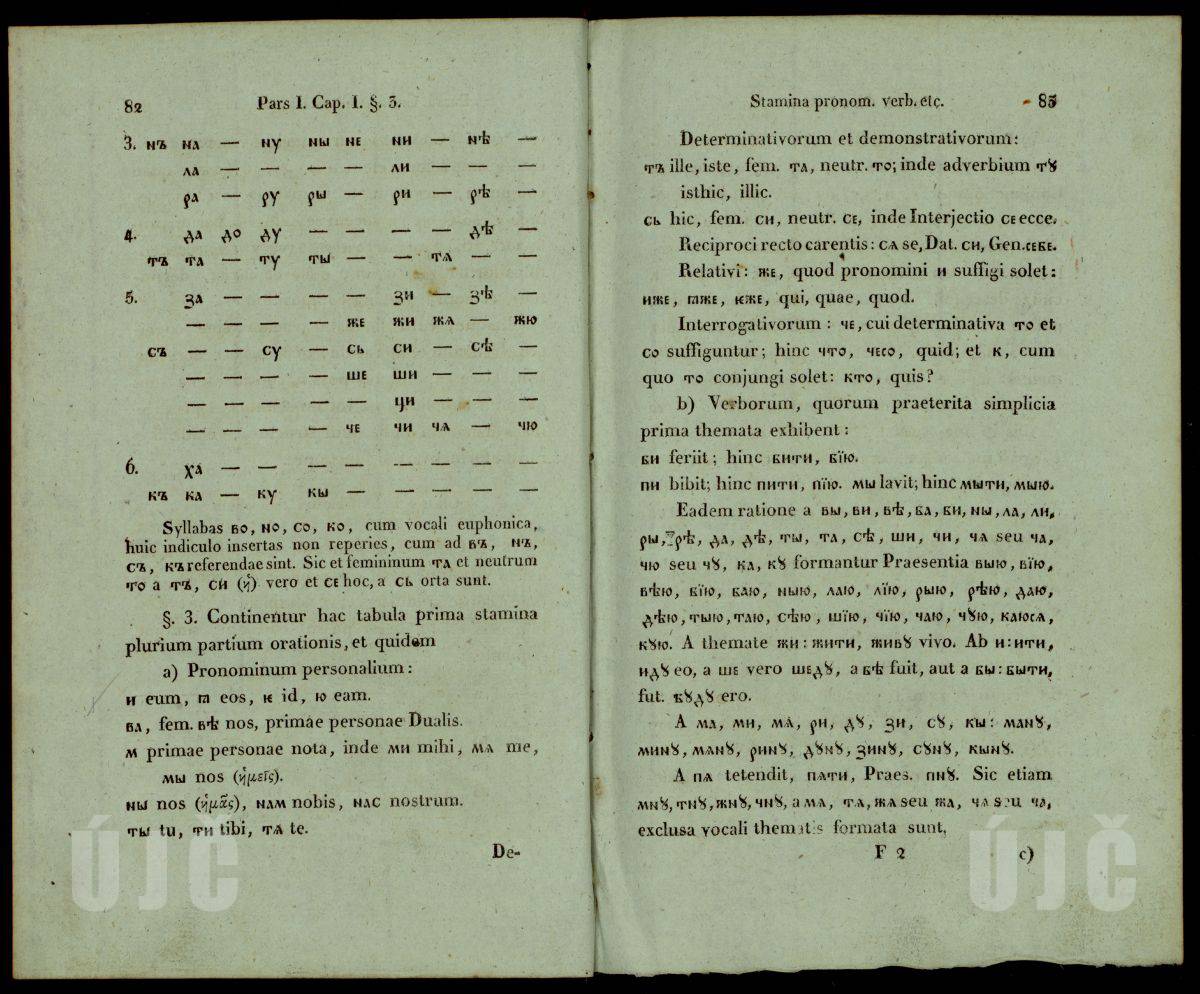 82 Pars I. Cap. I. §. 3.
3. нъ на — ну ны не ни — нѣ —
ла — — — — ли — — —
ра — ру ры — ри — рѣ —
4. да до ду — — — — дѣ —
тъ та — ту ты — — тѧ — —
5. за — — — — зи — зѣ —
— — — — же жи жѧ — жю
съ — — су — сь си — сѣ —
— — — — ше ши — — —
— — — — — ци — — —
— — — — че чи чѧ — чю
6. ха — — — — — — — —
къ ка — ку кы — — — — —
Syllabas во, но, со, ко, cum vocali euphonica,
huic indiculo insertas non reperies, cum ad въ, нъ,
съ, къ referendae sint. Sic et femininum та et neutrum
то a тъ, си (ἡ) vero et се hoc, a сь orta sunt.
§. 3. Continentur hac tabula prima stamina
plurium partium orationis, et quidem
a) Pronominum personalium:
и eum, ꙗ eos, ѥ id, ю eam.
ва, fem. вѣ nos, primae personae Dualis.
м primae personae nota, inde ми mihi, мѧ me,
мы nos (ἡμεῖς).
ны nos (ἡμᾶς), нам nobis, нас nostrum.
ты tu, ти tibi, тѧ te.
De-
Stamina pronom. verb. etc. 83
Determinativorum et demonstrativorum:
тъ ille, iste, fem. та, neutr. то; inde adverbium тꙋ
isthic, illic.
сь hic, fem. си, neutr. се, inde Interjectio се ecce.
Reciproci recto carentis: сѧ se, Dat. си, Gen. себе.
Relativi: же, quod pronomini и suffigi solet:
иже, ꙗже, ѥже, qui, quae, quod.
Interrogativorum: че, cui determinativa то et
со suffiguntur; hinc что, чесо, quid; et к, cum
quo то conjungi solet: кто, quis?
b) Verborum, quorum praeterita simplicia
prima themata exhibent:
би feriit; hinc бити, бїю.
пи bibit; hinc пити, пїю. мы lavit; hinc мыти, мыю.
Eadem ratione a вы, ви, вѣ, ба, ви, ны, ла, ли,
ры, рѣ, да, дѣ, ты, та, сѣ, ши, чи, чѧ seu ча,
чю seu чꙋ, ка, кꙋ formantur Praesentia выю, вїю,
вѣю, вїю, баю, ныю, лаю, лїю, рыю, рѣю, даю,
дѣю, тыю, таю, сѣю, шїю, чїю, чаю, чꙋю, каюсѧ,
кꙋю. A themate жи: жити, живꙋ vivo. Ab и: ити,
идꙋ eo, a ше vero шедꙋ, a бѣ fuit, aut a бы: быти,
fut. бꙋдꙋ ero.
A ма, ми, мѧ, ри, дꙋ, зи, сꙋ, кы: манꙋ,
минꙋ, мѧнꙋ, ринꙋ, дꙋнꙋ, зинꙋ, сꙋнꙋ, кынꙋ.
A пѧ tetendit, пѧти, Praes. пнꙋ. Sic etiam
мнꙋ, тнꙋ, жнꙋ, чнꙋ, a мѧ, тѧ, жѧ seu жа, чѧ seu ча,
exclusa vocali thematis formata sunt,
F 2 c)
ÚJČ
ÚJČ